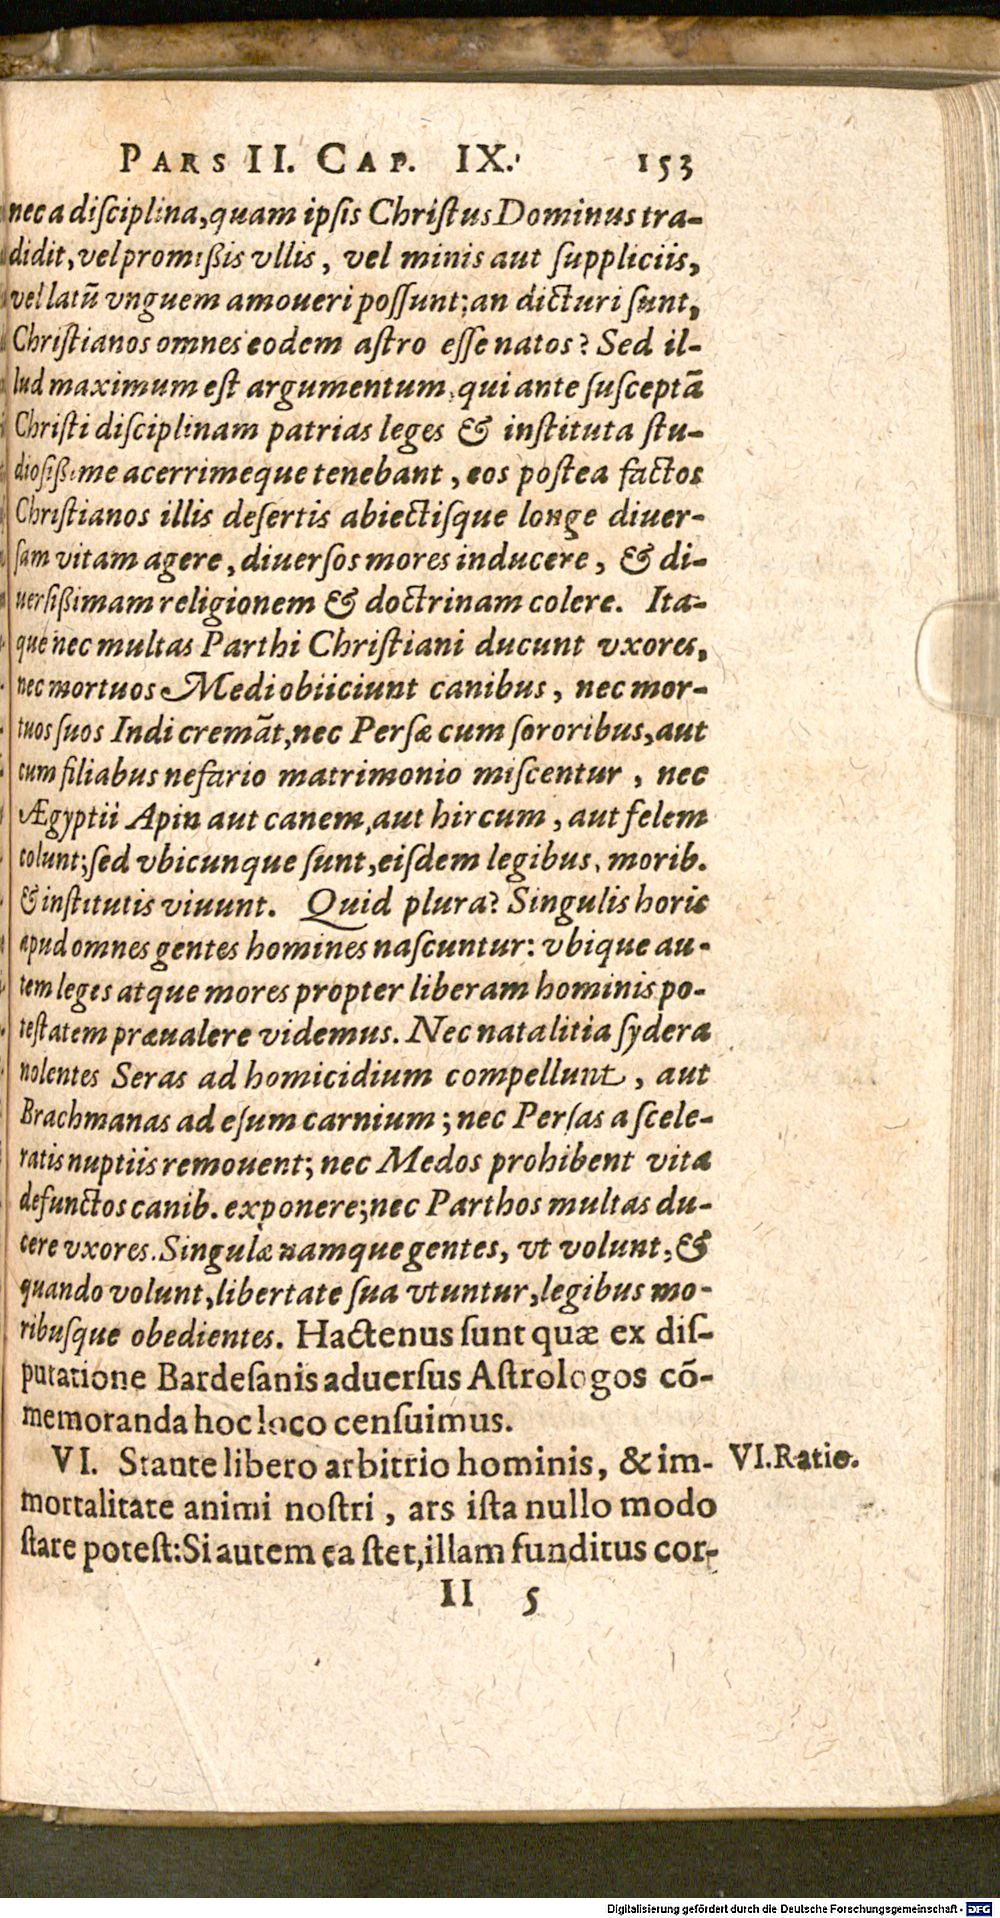 PARS II. CAP. IX. 153
nec a diſciplina, quam ipſis Chriſtus Dominus tra-
didit, vel promiſsis vllis, vel minis aut ſuppliciis,
vel latū vnguem amoueri poſſunt; an dicturi ſunt,
Chriſtianos omnes eodem aſtro eſſe natos? Sed il-
lud maximum eſt argumentum, qui ante ſuſceptā
Chriſti diſciplinam patrias leges & inſtituta ſtu-
dioſiſsime acerrimeque tenebant, eos poſtea factos
Chriſtianos illis deſertis abiectiſque longe diuer-
ſam vitam agere, diuerſos mores inducere, & di-
uerſiſsimam religionem & doctrinam colere. Ita-
que nec multas Parthi Chriſtiani ducunt vxores,
nec mortuos Medi obiiciunt canibus, nec mor-
tuos ſuos Indi cremāt, nec Perſæ cum ſororibus, aut
cum filiabus nefario matrimonio miſcentur, nec
Ægyptii Apin aut canem, aut hircum, aut felem
colunt; ſed vbicunque ſunt, eiſdem legibus, morib.
& inſtitutis viuunt. Quid plura? Singulis horis
apud omnes gentes homines naſcuntur: vbique au-
tem leges atque mores propter liberam hominis po-
teſtatem præualere videmus. Nec natalitia ſydera
nolentes Seras ad homicidium compellunt, aut
Brachmanas ad eſum carnium; nec Perſas a ſcele-
ratis nuptiis remouent; nec Medos prohibent vita
defunctos canib. exponere; nec Parthos multas du-
cere vxores. Singulæ namque gentes, vt volunt, &
quando volunt, libertate ſua vtuntur, legibus mo-
ribuſque obedientes. Hactenus ſunt quæ ex diſ-
putatione Bardeſanis aduerſus Aſtrologos cō-
memoranda hoc loco cenſuimus.
VI. Stante libero arbitrio hominis, & im- VI. Ratio.
mortalitate animi noſtri, ars iſta nullo modo
ſtare poteſt: Si autem ea ſtet, illam funditus cor-
II 5
Digitalisierung gefördert durch die Deutsche Forschungsgemeinschaft - DFG